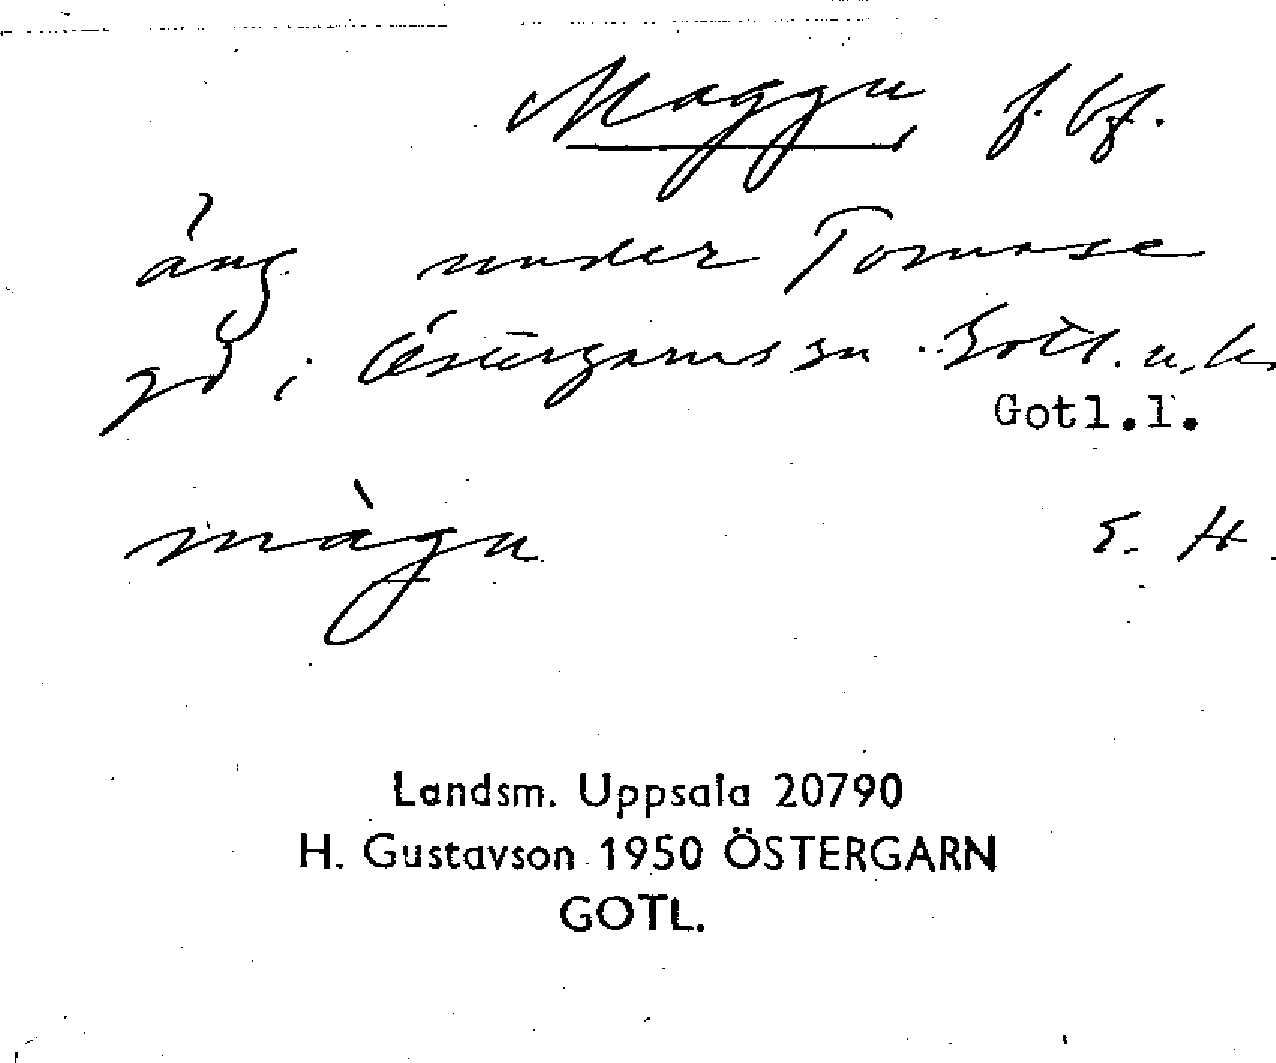 Maggu f. bf.
äng under Tomase
gd i Östergarns sn Gotl. n. hd
Gotl.l.
màgu E. H.
Landsm. Uppsala 20790
H. Gustavson 1950 ÖSTERGARN
GOTL.